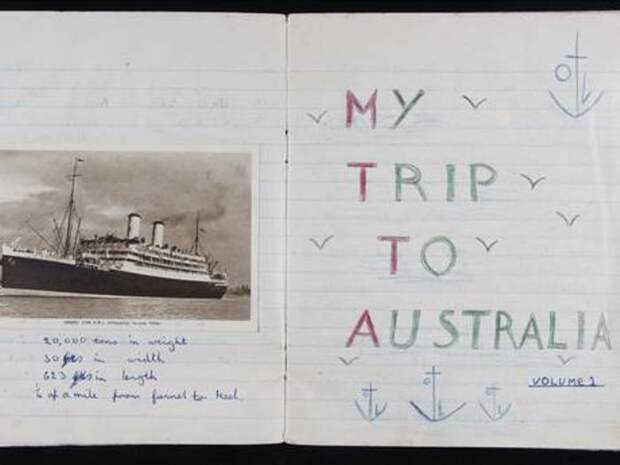 20,000 tons in weight
30 in width
623 in length
of a mile from funnel to keel.
MY
TRIP
TO
AUSTRALIA
VOLUME 1